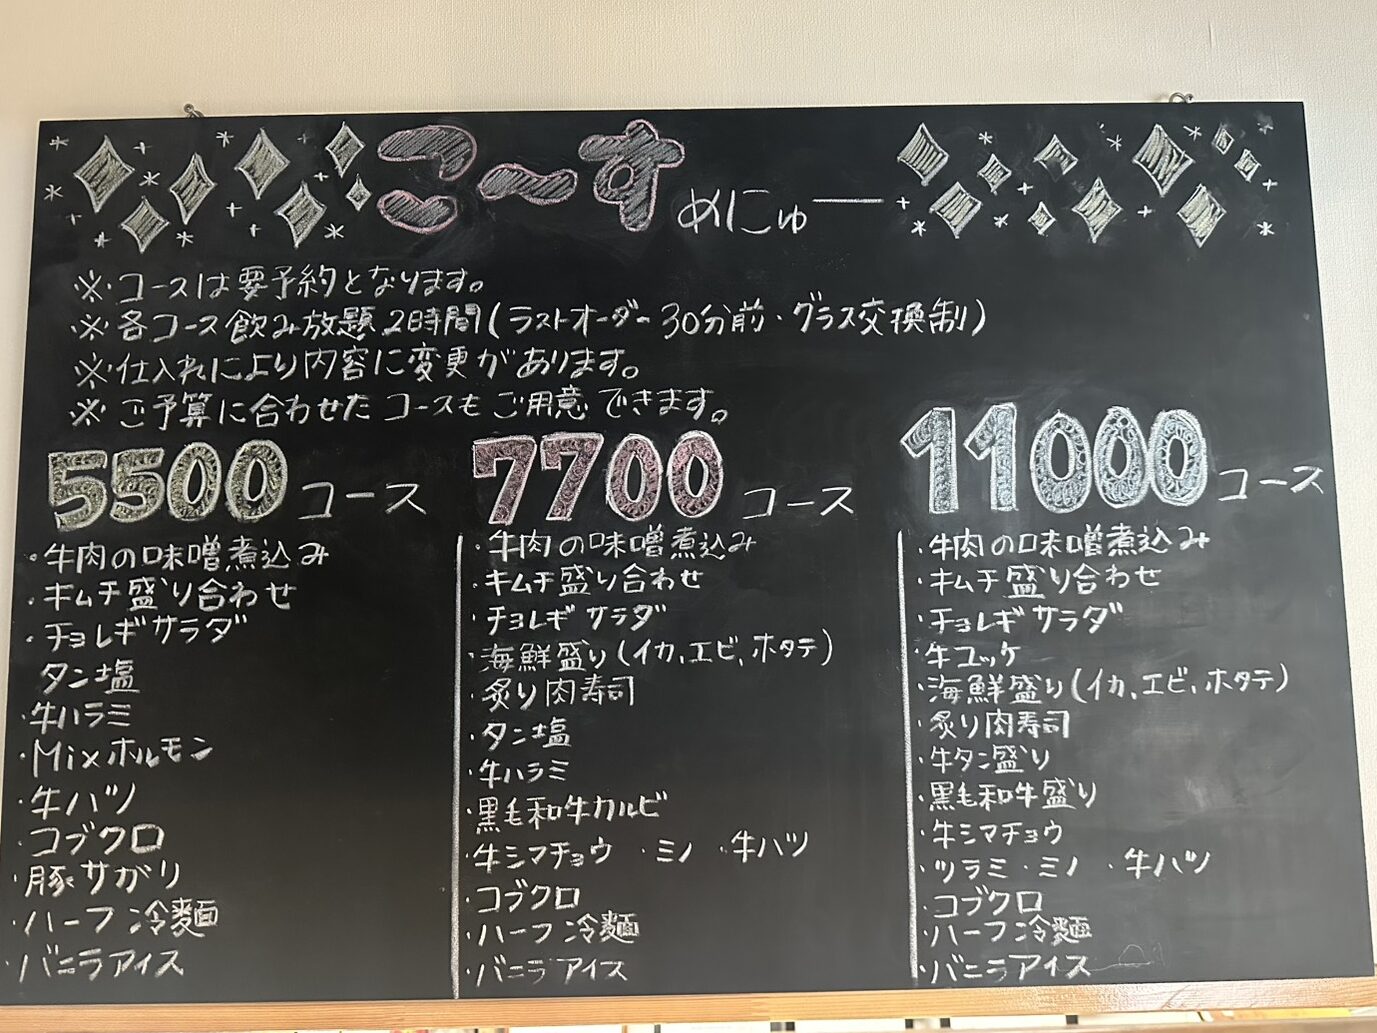 こ〜す めにゅー
※コースは要予約となります。
※各コース飲み放題2時間(ラストオーダー30分前・グラス交換制)
※仕入れにより内容に変更があります。
※ご予算に合わせたコースもご用意できます。
5500コース
・牛肉の味噌煮込み
・キムチ盛り合わせ
・チョレギサラダ
タン塩
・牛ハラミ
・Mixホルモン
・牛ハツ
・コブクロ
・豚サガリ
・ハーフ冷麺
・バニラアイス
7700コース
・牛肉の味噌煮込み
・キムチ盛り合わせ
・チョレギサラダ
・海鮮盛り(イカ、エビ、ホタテ)
・炙り肉寿司
・タン塩
・牛ハラミ
・黒毛和牛カルビ
・牛シマチョウ ・ミノ ・牛ハツ
・コブクロ
・ハーフ冷麺
・バニラアイス
11000コース
・牛肉の味噌煮込み
・キムチ盛り合わせ
・チョレギサラダ
・牛ユッケ
・海鮮盛り(イカ、エビ、ホタテ)
・炙り肉寿司
・牛タン盛り
・黒毛和牛盛り
・牛シマチョウ
・ツラミ・ミノ ・牛ハツ
・コブクロ
・ハーフ冷麺
・バニラアイス